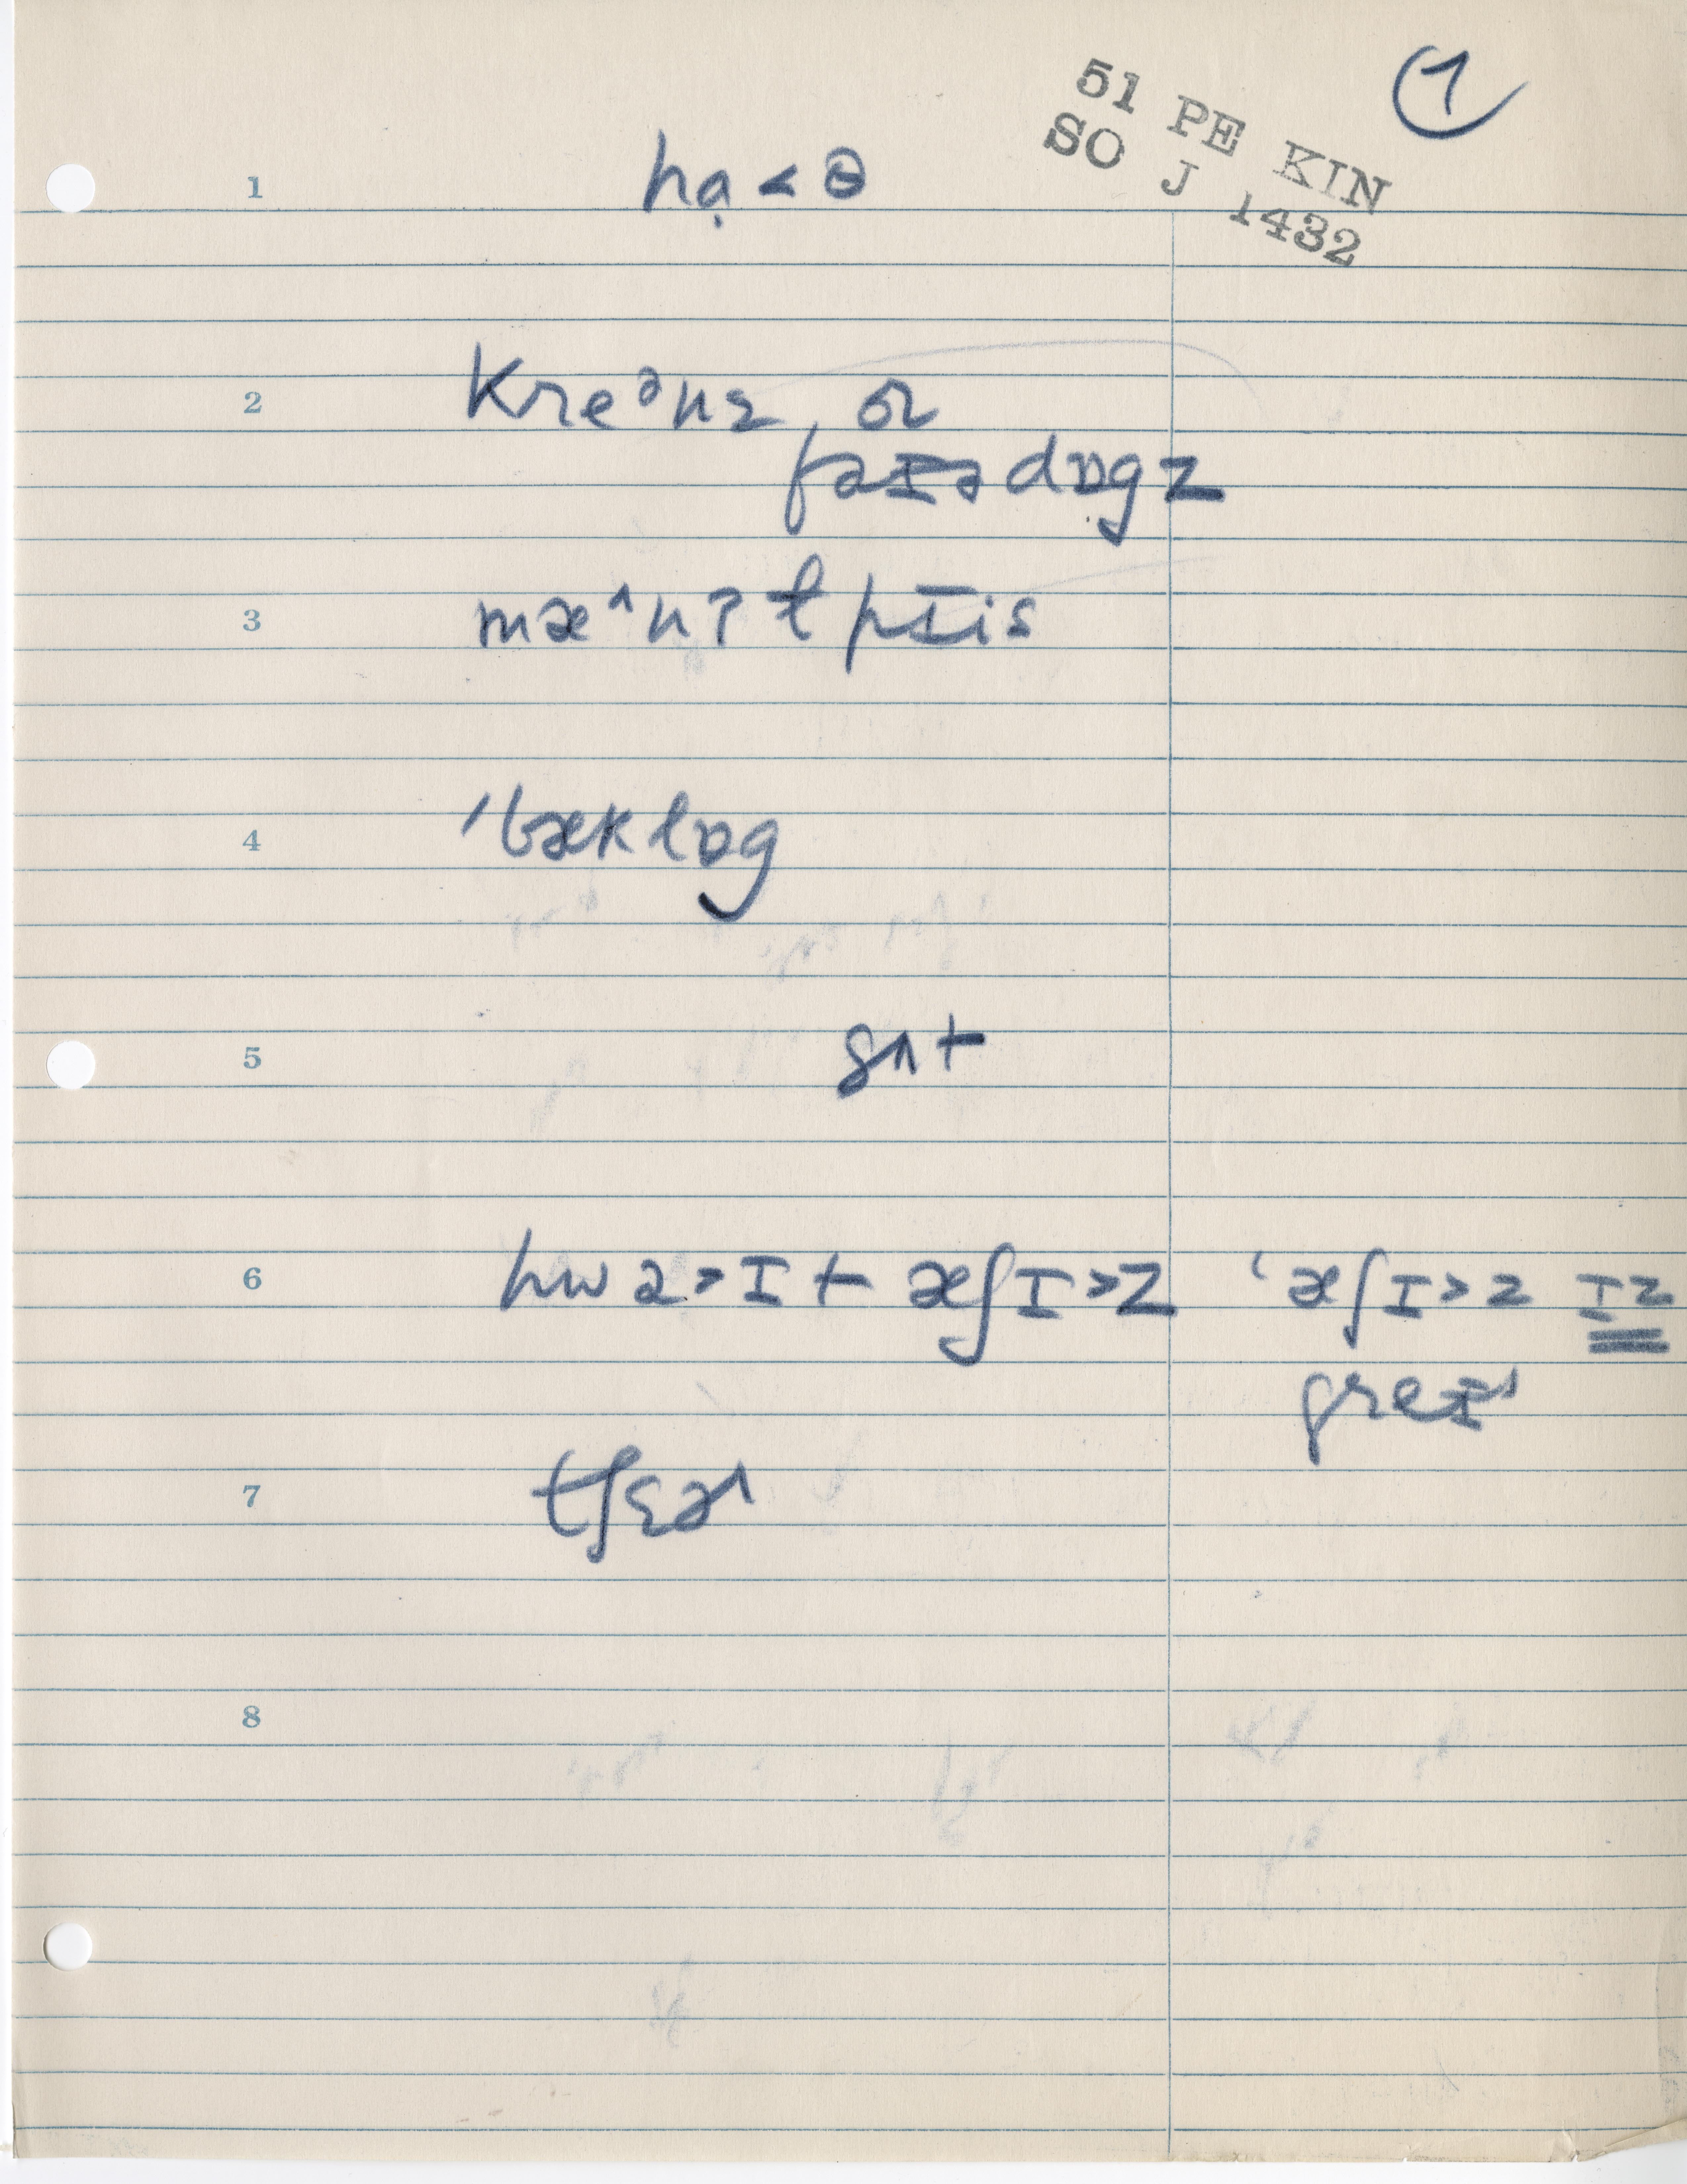 ①
51 PE KIN
SO J 1432
1 hạ˂ɵ
2 Kreᵊnz, oɹ
faɪə dɒgz
3 mæ^nʔtḷpis
4 ˈbæklɒg
5 sʌt
6 hwa˃ɪt æʃɪ˃z ˈæʃɪ˃z ɪz
greɪ˄
7 tʃɛə˄
8